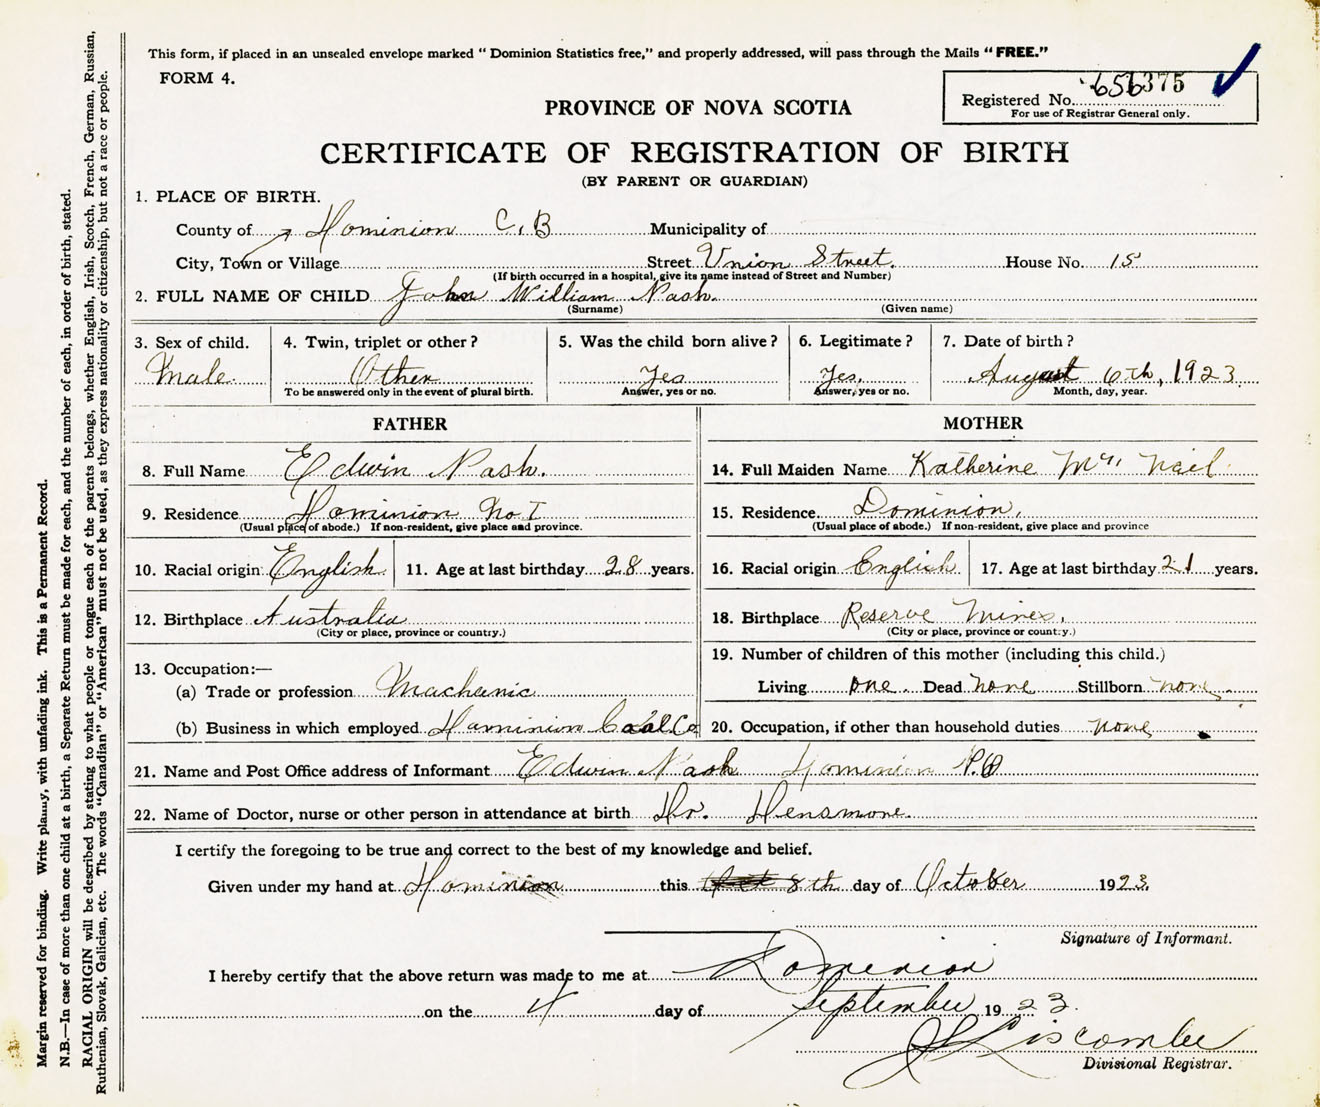 This form, if placed in an unsealed envelope marked "Dominion Statistics free," and properly addressed, will pass through the Mails "FREE."
FORM 4.
Registered No. 375
For use of Registrar General only.
PROVINCE OF NOVA SCOTIA
CERTIFICATE OF REGISTRATION OF BIRTH
(BY PARENT OR GUARDIAN)
1. PLACE OF BIRTH.
County of Dominion C.B Municipality of
City, Town or Village Street Union Street. House No. 15
(If birth occurred in a hospital, give its name instead of Street and Number)
2. FULL NAME OF CHILD John William Nash.
(Surname) (Given name)
3. Sex of child. 4. Twin, triplet or other? 5. Was the child born alive? 6. Legitimate? 7. Date of birth?
Male. Other Yes Yes. August 6th, 1923.
To be answered only in the event of plural birth. Answer, yes or no. Answer, yes or no. Month, day, year.
FATHER MOTHER
8. Full Name Edwin Nash. 14. Full Maiden Name Katherine Mc Neil
9. Residence Dominion No. 1 15. Residence. Dominion.
(Usual place of abode.) If non-resident, give place and province. (Usual place of abode.) If non-resident, give place and province
10. Racial origin English 11. Age at last birthday 28 years. 16. Racial origin English 17. Age at last birthday 21 years.
12. Birthplace Australia 18. Birthplace Reserve Mines.
(City or place, province or country.) (City or place, province or country.)
13. Occupation:— 19. Number of children of this mother (including this child.)
(a) Trade or profession Machanic Living one. Dead none Stillborn none.
(b) Business in which employed Dominion Coal Co 20. Occupation, if other than household duties none
21. Name and Post Office address of Informant Edwin Nash Dominion P.O
22. Name of Doctor, nurse or other person in attendance at birth Dr. Densmore.
I certify the foregoing to be true and correct to the best of my knowledge and belief.
Given under my hand at Dominion this 8th day of October 1923.
Signature of Informant.
I hereby certify that the above return was made to me at Dominion
on the 4 day of September 1923.
Liscombe
Divisional Registrar.
Margin reserved for binding. Write plainly, with unfading ink. This is a Permanent Record.
N.B.—In case of more than one child at a birth, a Separate Return must be made for each, and the number of each, in order of birth, stated.
RACIAL ORIGIN will be described by stating to what people or tongue each of the parents belongs, whether English, Irish, Scotch, French, German, Russian,
Ruthenian, Slovak, Galician, etc. The words "Canadian" or "American" must not be used, as they express nationality or citizenship, but not a race or people.